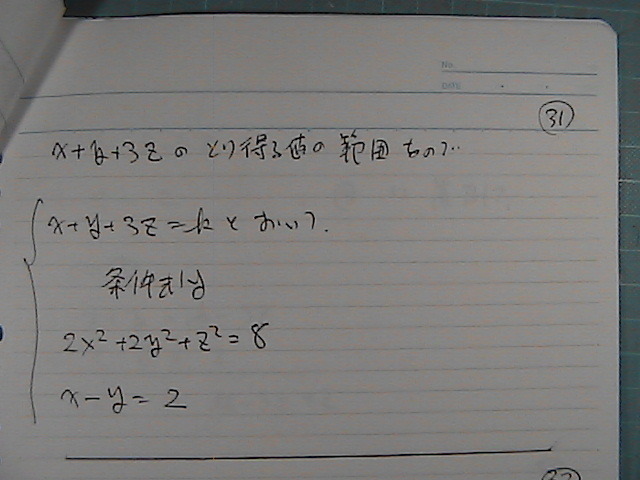 No.
DATE
31
x+y+3zのとり得る値の範囲なので
x+y+3z=kとおいて.
条件式は
2x²+2y²+z²=8
x-y=2